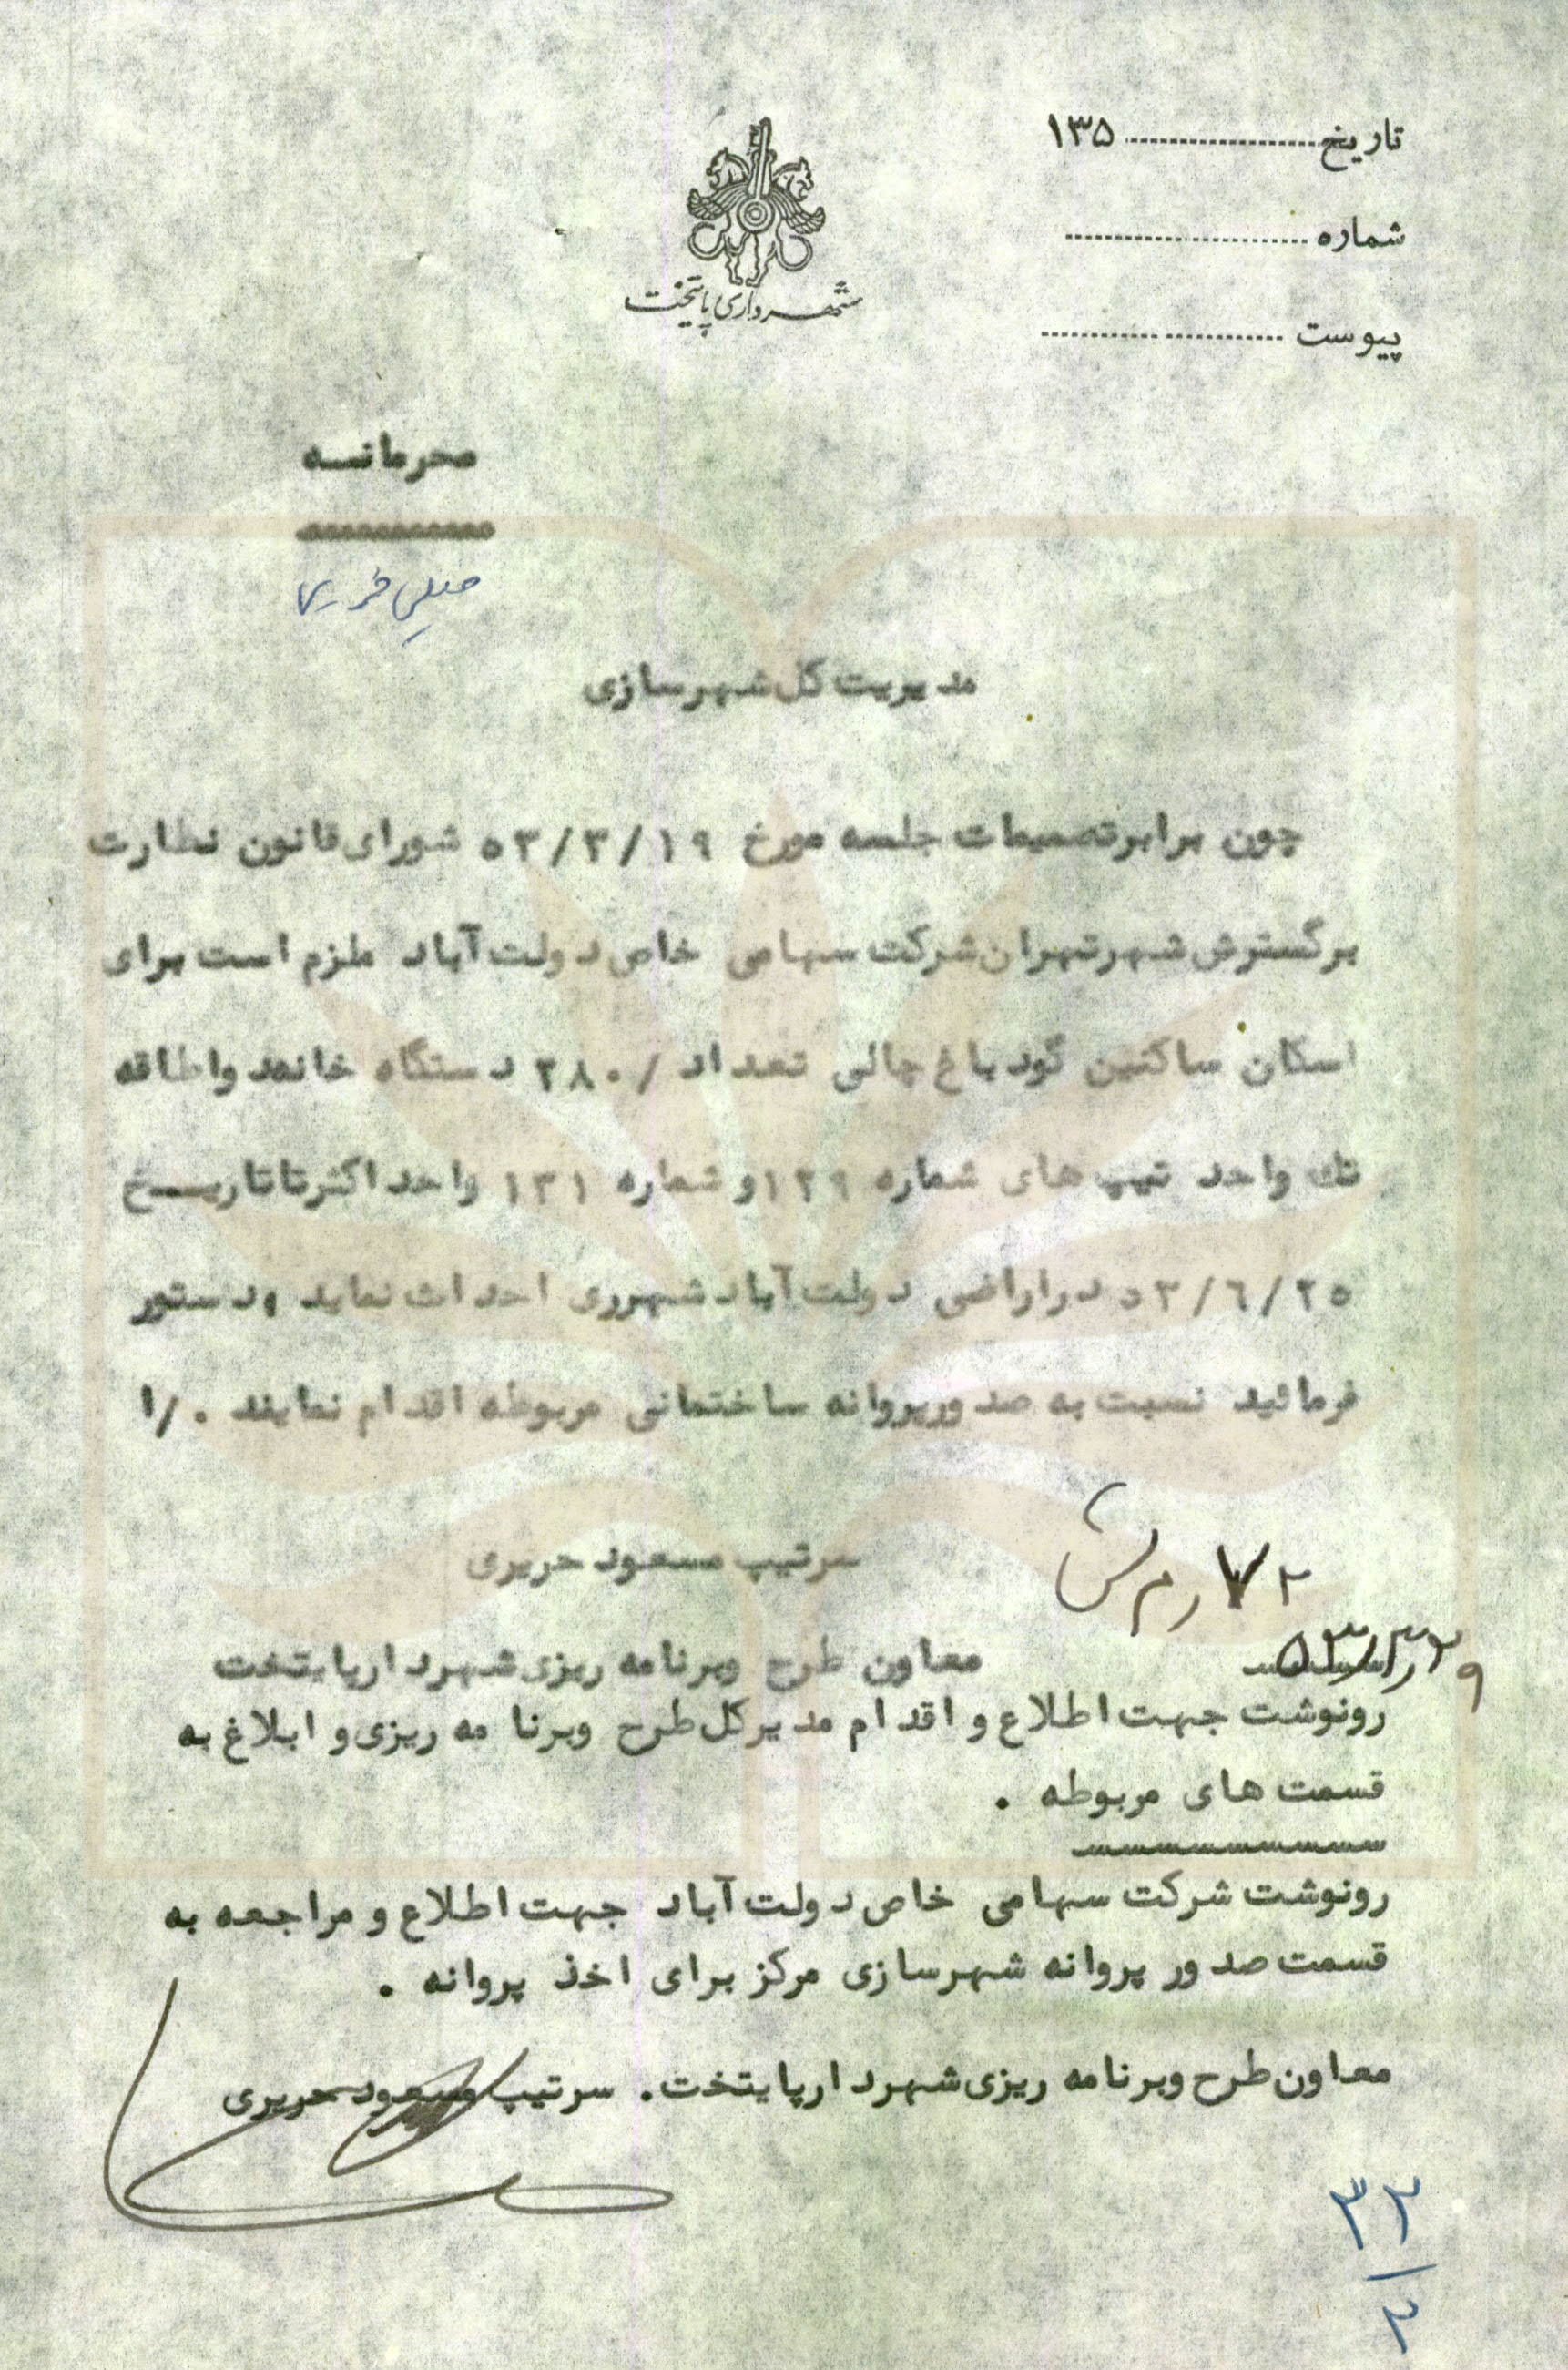 تاریخ ............ ۱۳۵
شماره ............
پیوست ............
شهرداری پایتخت
محرمانه
خیلی فوری
مدیریت کل شهرسازی
چون برابر تصمیمات جلسه مورخ ۵۳/۳/۱۹ شورای قانون نظارت
بر گسترش شهر تهران شرکت سهامی خاص دولت آباد ملزم است برای
اسکان ساکنین گود باغ چالی تعداد /۲۸۰ دستگاه خانه دو اطاقه
تك واحد تیپ های شماره ۱۲۹ و شماره ۱۳۱ را حداکثر تا تاریخ
۵۳/۶/۲۵ در اراضی دولت آباد شهرری احداث نماید ودستور
فرمائید نسبت به صدور پروانه ساختمانی مربوطه اقدام نمایند ./ا
سرتیپ مسعود حریری
۷۲
۵۳/۳/۲۹
معاون طرح وبرنامه ریزی شهردار پایتخت
رونوشت جهت اطلاع و اقدام مدیر کل طرح وبرنامه ریزی و ابلاغ به
قسمت های مربوطه .
رونوشت شرکت سهامی خاص دولت آباد جهت اطلاع و مراجعه به
قسمت صدور پروانه شهرسازی مرکز برای اخذ پروانه .
معاون طرح وبرنامه ریزی شهردار پایتخت. سرتیپ مسعود حریری
۳۲
۲